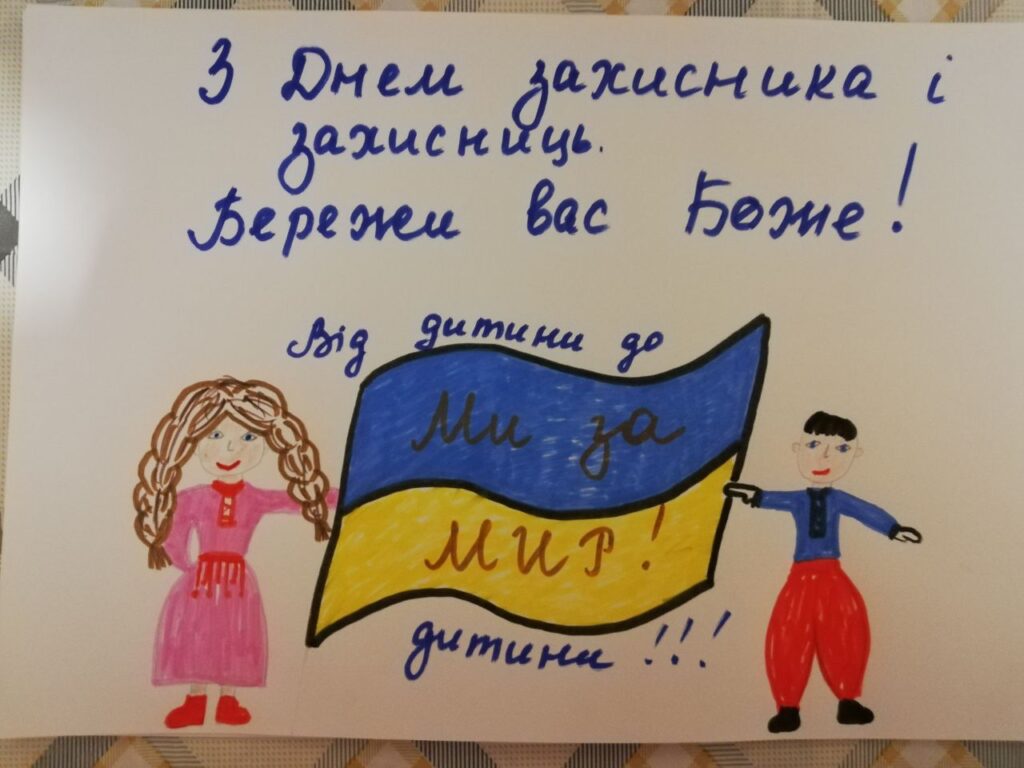 З Днем захисника і
захисниць.
Бережи вас Боже!
Від дитини до
Ми за
мир!
дитини!!!